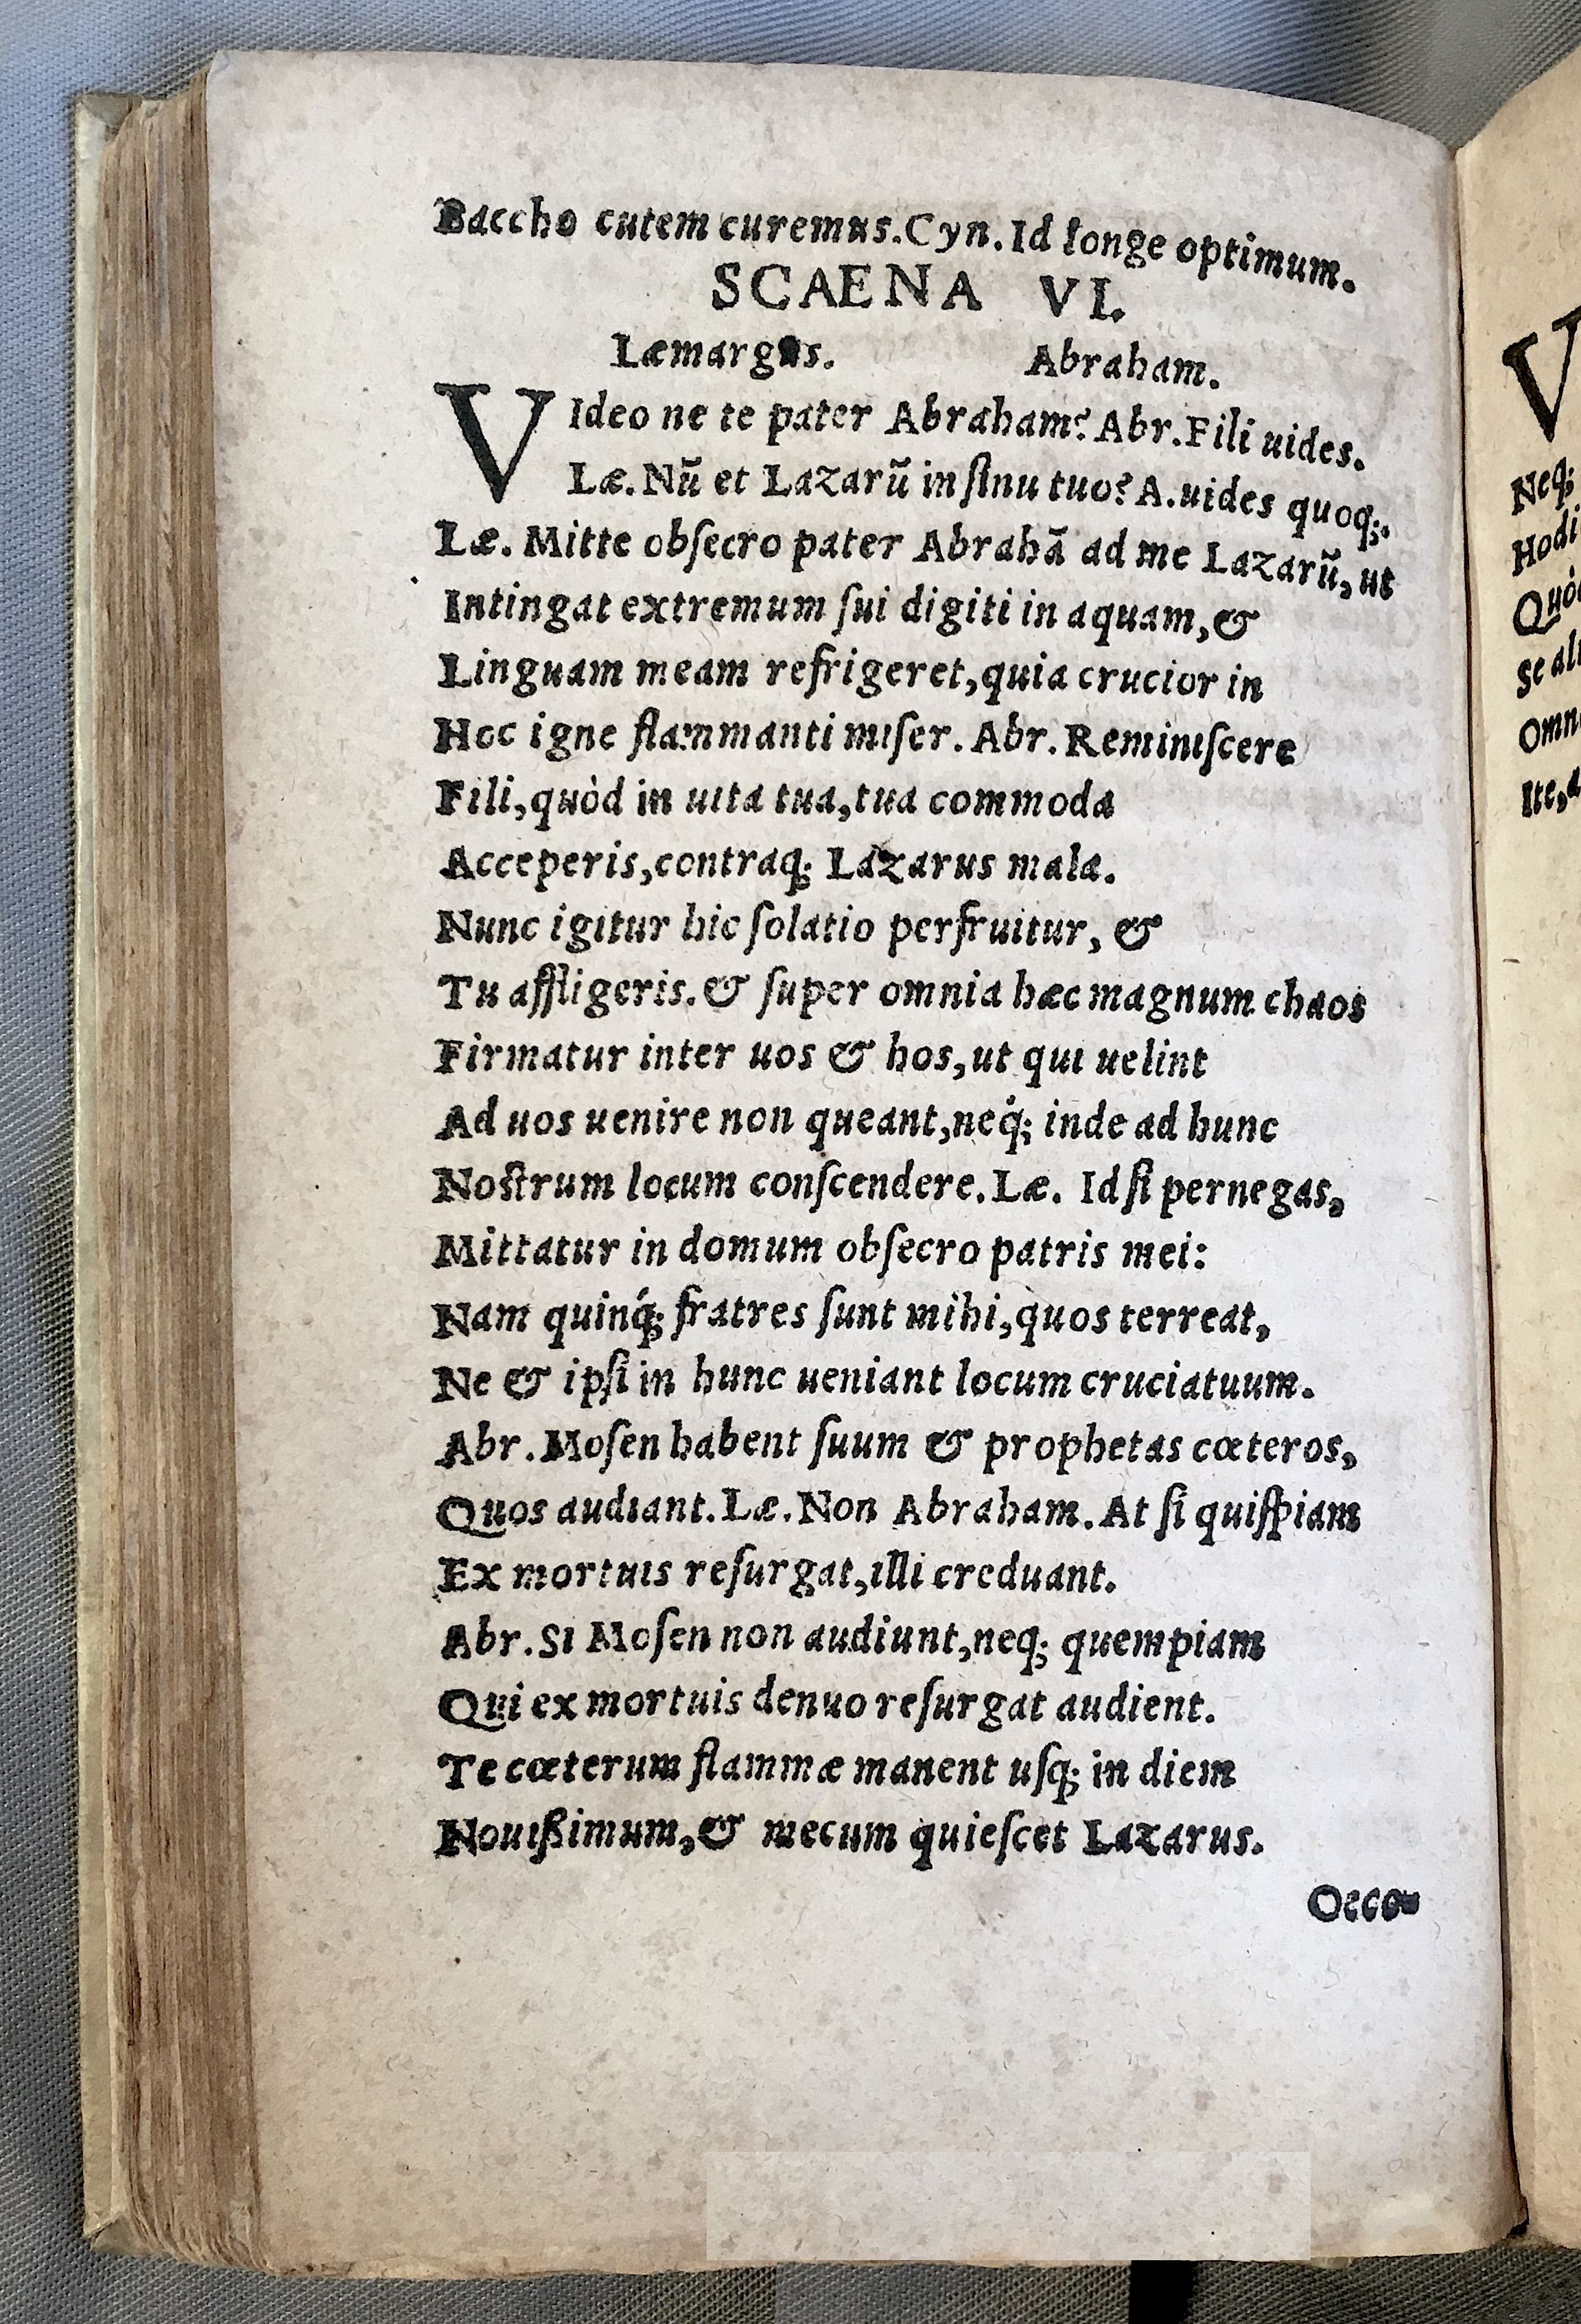 Baccho cutem curemus. Cyn. Id longe optimum.
SCAENA VI.
Læmargus. Abraham.
VIdeo ne te pater Abraham? Abr. Fili uides.
Læ. Nū et Lazarū in ſinu tuo? A. uides quoq;.
Læ. Mitte obſecro pater Abrahā ad me Lazarū, ut
Intingat extremum ſui digiti in aquam, &
Linguam meam refrigeret, quia crucior in
Hoc igne flammanti miſer. Abr. Reminiſcere
Fili, quòd in uita tua, tua commoda
Acceperis, contraq; Lazarus mala.
Nunc igitur hic ſolatio perfruitur, &
Tu affligeris. & ſuper omnia hæc magnum chaos
Firmatur inter uos & hos, ut qui uelint
Ad uos uenire non queant, neq́; inde ad hunc
Noſtrum locum conſcendere. Læ. Id ſi pernegas,
Mittatur in domum obſecro patris mei:
Nam quinq́; fratres ſunt mihi, quos terreat,
Ne & ipſi in hunc ueniant locum cruciatuum.
Abr. Moſen habent ſuum & prophetas cœteros,
Quos audiant. Læ. Non Abraham. At ſi quiſpiam
Ex mortuis reſurgat, illi creduant.
Abr. Si Moſen non audiunt, neq; quempiam
Qui ex mortuis denuo reſurgat audient.
Te cœterum flammæ manent uſq; in diem
Nouißimum, & mecum quieſcet Lazarus.
V
Neq;
Hodi
Quò
Se ali
Omn
Ite, a